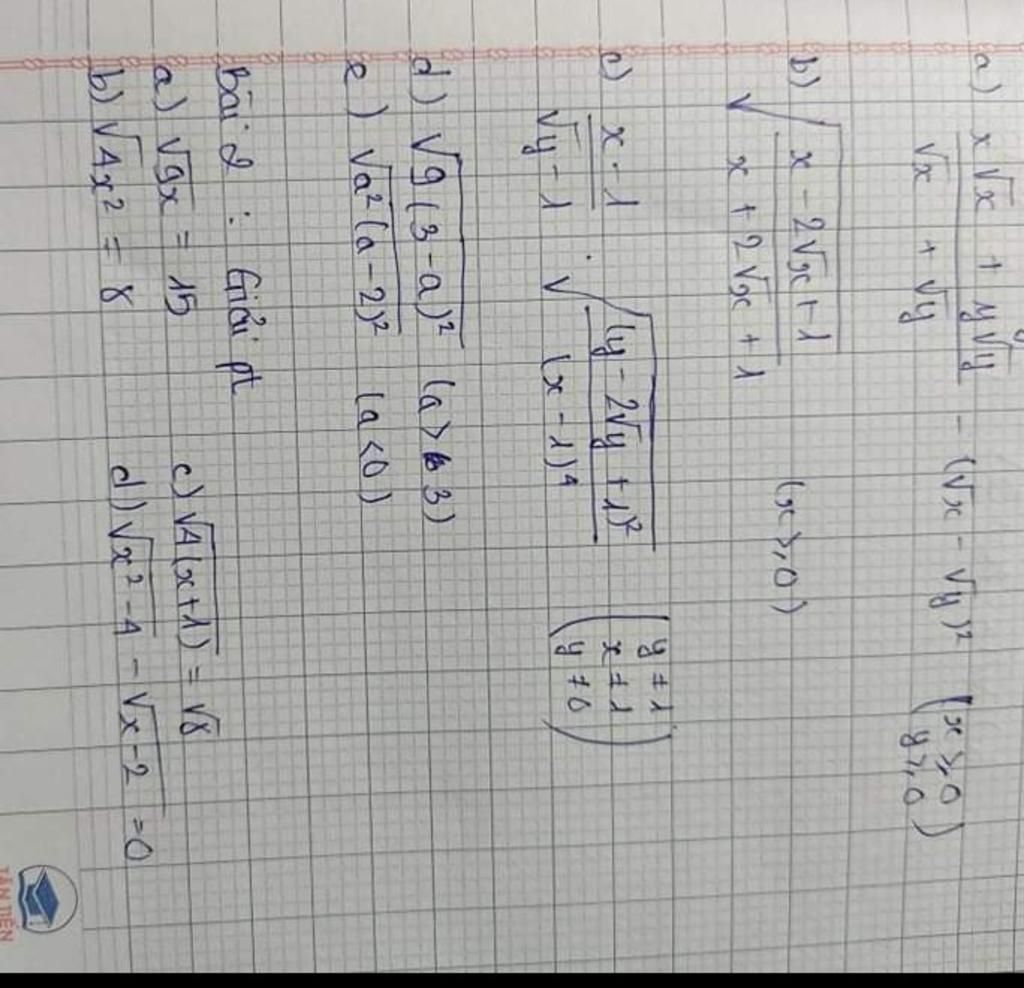 a) \frac{x\sqrt{x} + y\sqrt{y}}{\sqrt{x} + \sqrt{y}} - (\sqrt{x} - \sqrt{y})^2 (x ⩾ 0 y ⩾ 0)
b) \sqrt{\frac{x - 2\sqrt{x} + 1}{x + 2\sqrt{x} + 1}} (x ⩾ 0)
c) \frac{x - 1}{\sqrt{y} - 1} . \sqrt{\frac{(y - 2\sqrt{y} + 1)^2}{(x - 1)^4}} (y ≠ 1 x ≠ 1 y ≠ 0)
d) \sqrt{9(3 - a)^2} (a > 3)
e) \sqrt{a^2(a - 2)^2} (a < 0)
Bài 2 : Giải pt
a) \sqrt{9x} = 15
b) \sqrt{4x^2} = 8
c) \sqrt{4(x + 1)} = \sqrt{8}
d) \sqrt{x^2 - 4} - \sqrt{x - 2} = 0
TÂN TIẾN